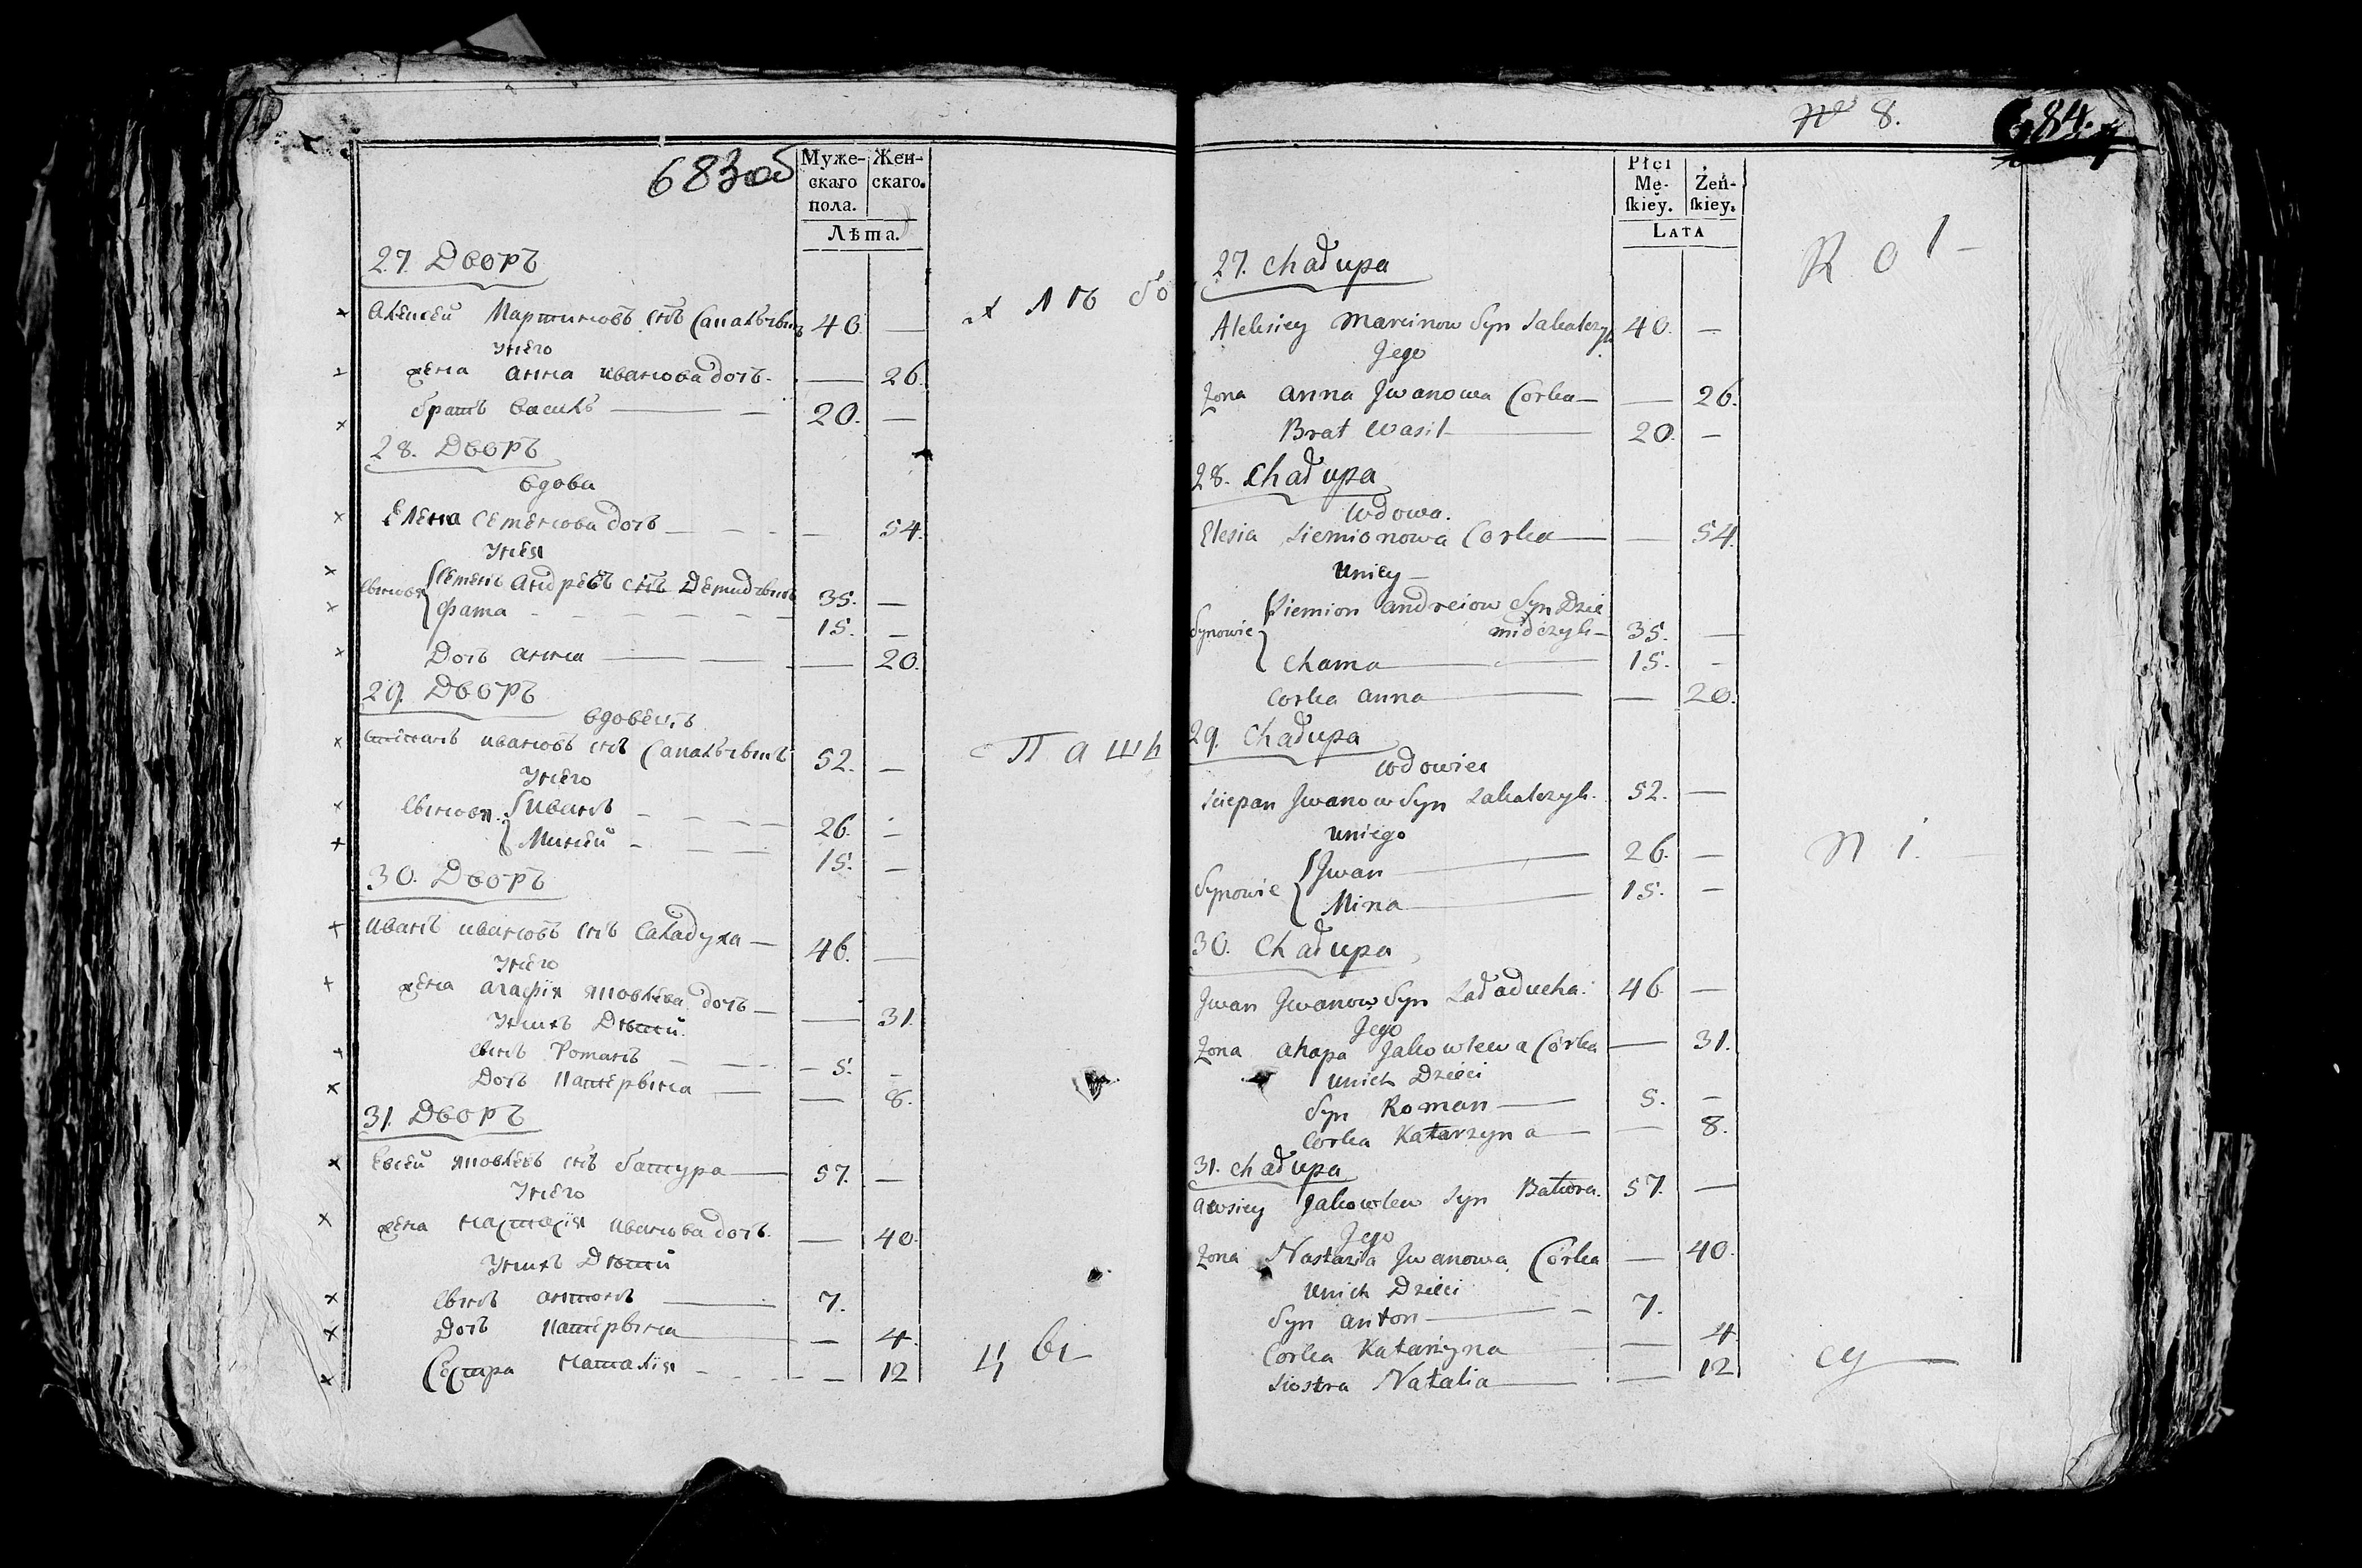 683об
Муже- Жен-
скаго скаго.
пола.
Лѣта.
27. Дворъ
Алексей Мартиновъ снъ Сакальчикъ 40. —
х лѣ бо
У него
жена Анна Иванова дочь — 26.
братъ Василь — 20. —
28. Дворъ
вдова
Елена Семенова дочь — — 54.
У нея
Сыновя Семенъ Андреевъ снъ Демидчикъ 35. —
Фама 15. —
Дочь Анна — — 20.
29. Дворъ
вдовецъ
Степанъ Ивановъ снъ Сакальчикъ 52. —
Паш
У него
Сыновя Иванъ 26. —
Миней 15. —
30. Дворъ
Иванъ Ивановъ снъ Саладуха — 46. —
У него
жена Агафiя Яковлева дочь — — 31.
У нихъ Дѣти
Сынъ Романъ 5. —
Дочь Катерына — — 8.
31. Дворъ
Евсей Яковлевъ снъ батура — 57. —
У него
жена Настасiя Иванова дочь — 40.
У нихъ Дѣти
Сынъ Антонъ — 7.
Дочь Катерына — — 4.
Сестра Наталiя — — 12
цы
№ 8.
684.
Płci
Mę- Żeń-
ſkiey. ſkiey.
LATA
27. Chałupa
Rol-
Aleksiey Marcinow Syn Sakalczyk 40. —
Jego
Zona Anna Jwanowa Corka — — 26.
Brat Wasil — 20. —
28. Chałupa
Wdowa.
Elesia Siemionowa Corka — — 54.
Uniey —
Synowie Siemion Andreiow Syn Dzie
midczyk — 35. —
Chama — 15. —
Corka Anna — — 20.
29. Chałupa
Wdowiec
Sciepan Jwanow Syn Sakalczyk. 52. —
Uniego
Synowie Jwan — 26. —
ni.
Mina — 15. —
30. Chałupa
Jwan Jwanow Syn Saładucha. 46 —
Jego
Zona Ahapa Jakowlewa Córka — 31.
Unich Dzieci
Syn Roman — 5. —
Corka Katarzyna — — 8.
31. Chałupa
Awsiey Jakowlew Syn Batura. 57. —
Jego
Zona Nastazia Jwanowa Córka — 40.
Unich Dzieci
Syn Anton — — 7.
Corka Katarzyna — 4
Siostra Natalia — — 12
cy —